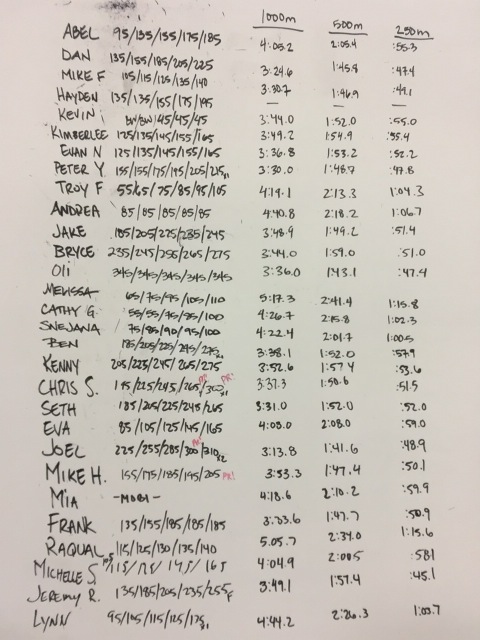 1000m 500m 250m
ABEL 95/135/155/175/185 4:05.2 2:05.4 :55.3
DAN 135/155/185/205/225 3:24.6 1:45.8 :47.4
MIKE F 105/115/125/135/140 3:30.7 1:46.9 :49.1
HAYDEN 135/135/155/175/195 — — —
KEVIN BW/BW/45/45/45 3:44.0 1:52.0 :55.0
KIMBERLEE 125/135/145/155/165 3:49.2 1:54.9 :55.4
EVAN N 125/135/145/155/165 3:36.8 1:53.2 :52.2
PETER Y. 155/155/175/195/205/215 3:30.0 1:48.7 :47.8
TROY F 55/65/75/85/95/105 4:19.1 2:13.3 1:04.3
ANDREA 85/85/85/85/85 4:40.8 2:18.2 1:06.7
JAKE 185/205/225/235/245 3:48.9 1:49.2 :51.4
BRYCE 235/245/255/265/275 3:44.0 1:59.0 :51.0
Oli 345/345/345/345/345 3:36.0 1:43.1 :47.4
MELISSA 65/75/95/105/110 5:17.3 2:41.4 1:15.8
CATHY G. 55/55/75/85/100 4:26.7 2:15.8 1:02.3
SNEJANA 75/85/90/95/100 4:22.4 2:01.7 1:00.5
BEN 185/205/225/245/275 3:38.1 1:52.0 :57.9
KENNY 205/225/245/265/275 3:52.6 1:57.4 :53.6
CHRIS S. 195/225/245/265/300 PR PR! 3:37.3 1:50.6 :51.5
SETH 185/205/225/245/265 3:31.0 1:52.0 :52.0
EVA 85/105/125/145/165 4:08.0 2:08.0 :59.0
JOEL 225/255/285/300/310 x2 PR 3:13.8 1:41.6 :48.9
MIKE H. 155/175/185/195/205 PR! 3:53.3 1:47.4 :50.1
MIA -MOBI- 4:18.6 2:10.2 :59.9
FRANK 135/155/185/185/185 3:33.6 1:47.7 :50.9
RAQUAL 115/125/130/135/140 5:05.7 2:34.0 1:15.6
MICHELLE S. 105/115/125/145/165 4:04.9 2:00.5 :58.1
JEREMY R. 135/185/205/235/255 F 3:49.1 1:57.4 :45.1
LYNN 95/105/115/125/175 4:44.2 2:26.3 1:03.7